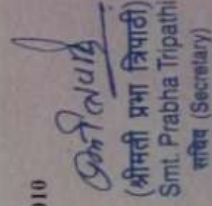 010
(श्रीमती प्रभा त्रिपाठी)
Smt. Prabha Tripathi
सचिव (Secretary)